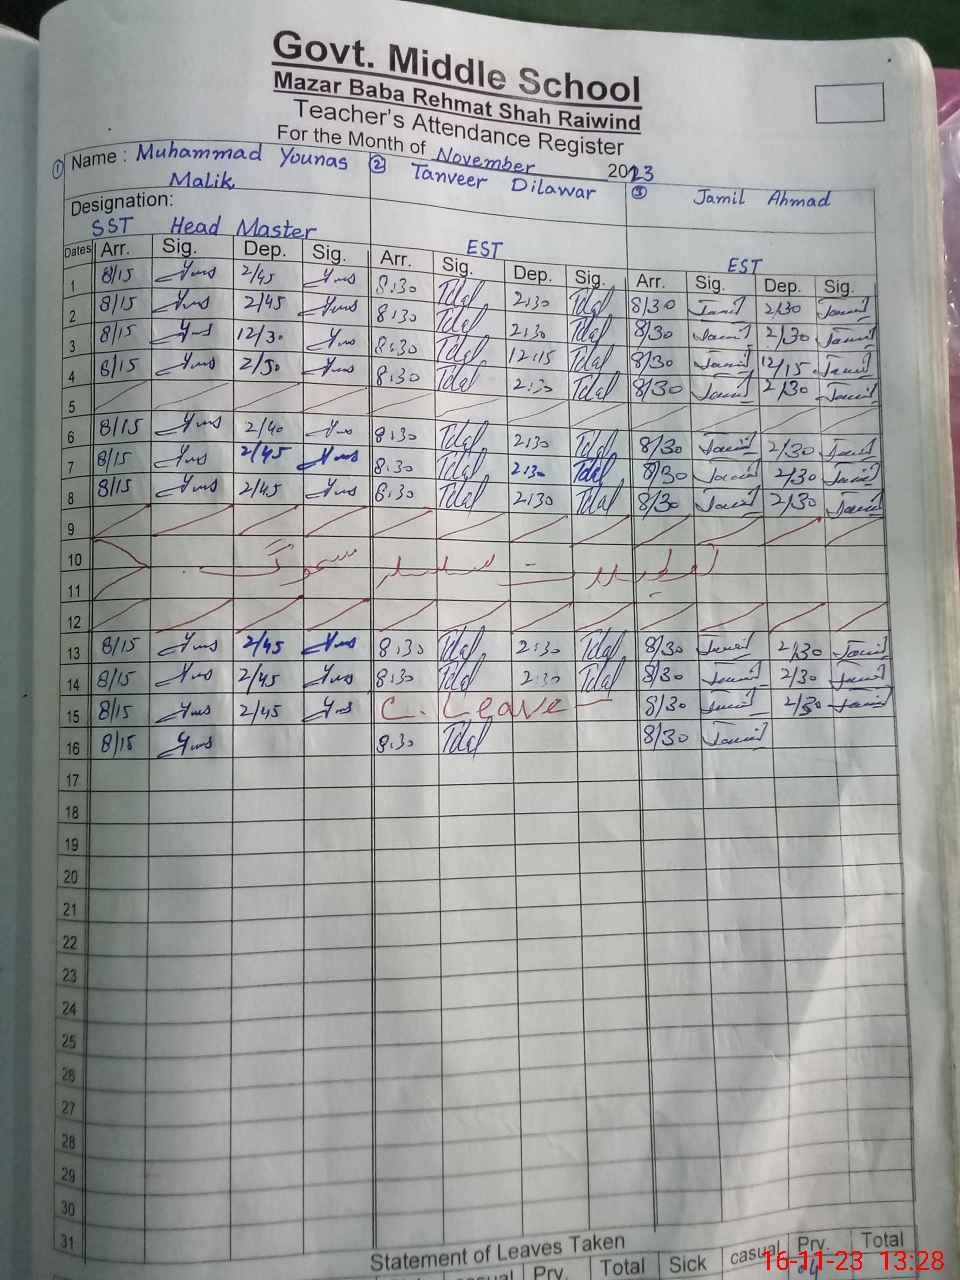 Govt. Middle School
Mazar Baba Rehmat Shah Raiwind
Teacher's Attendance Register
For the Month of November 2023
① Name : Muhammad Younas Malik ② Tanveer Dilawar ③ Jamil Ahmad
Designation:
SST Head Master EST EST
Dates Arr. Sig. Dep. Sig. Arr. Sig. Dep. Sig. Arr. Sig. Dep. Sig.
1 8/15 2/45 8:30 2:30 8/30 Jamil 2/30 Jamil
2 8/15 2/45 8:30 2:30 8/30 Jamil 2/30 Jamil
3 8/15 12/30 8:30 12:15 8/30 Jamil 12/15 Jamil
4 8/15 2/30 8:30 2:30 8/30 Jamil 2/30 Jamil
5
6 8/15 2/40 8:30 2:30 8/30 Jamil 2/30 Jamil
7 8/15 2/45 8:30 2:30 8/30 Jamil 2/30 Jamil
8 8/15 2/45 8:30 2:30 8/30 Jamil 2/30 Jamil
9
10 تعطیلات سلسلہ سموگ
11
12
13 8/15 2/45 8:30 2:30 8/30 Jamil 2/30 Jamil
14 8/15 2/45 8:30 2:30 8/30 Jamil 2/30 Jamil
15 8/15 2/45 C. Leave 8/30 Jamil 2/30 Jamil
16 8/15 8:30 8/30 Jamil
17
18
19
20
21
22
23
24
25
26
27
28
29
30
31
Statement of Leaves Taken
casual Prv. Total Sick casual Prv. Total
16-11-23 13:28